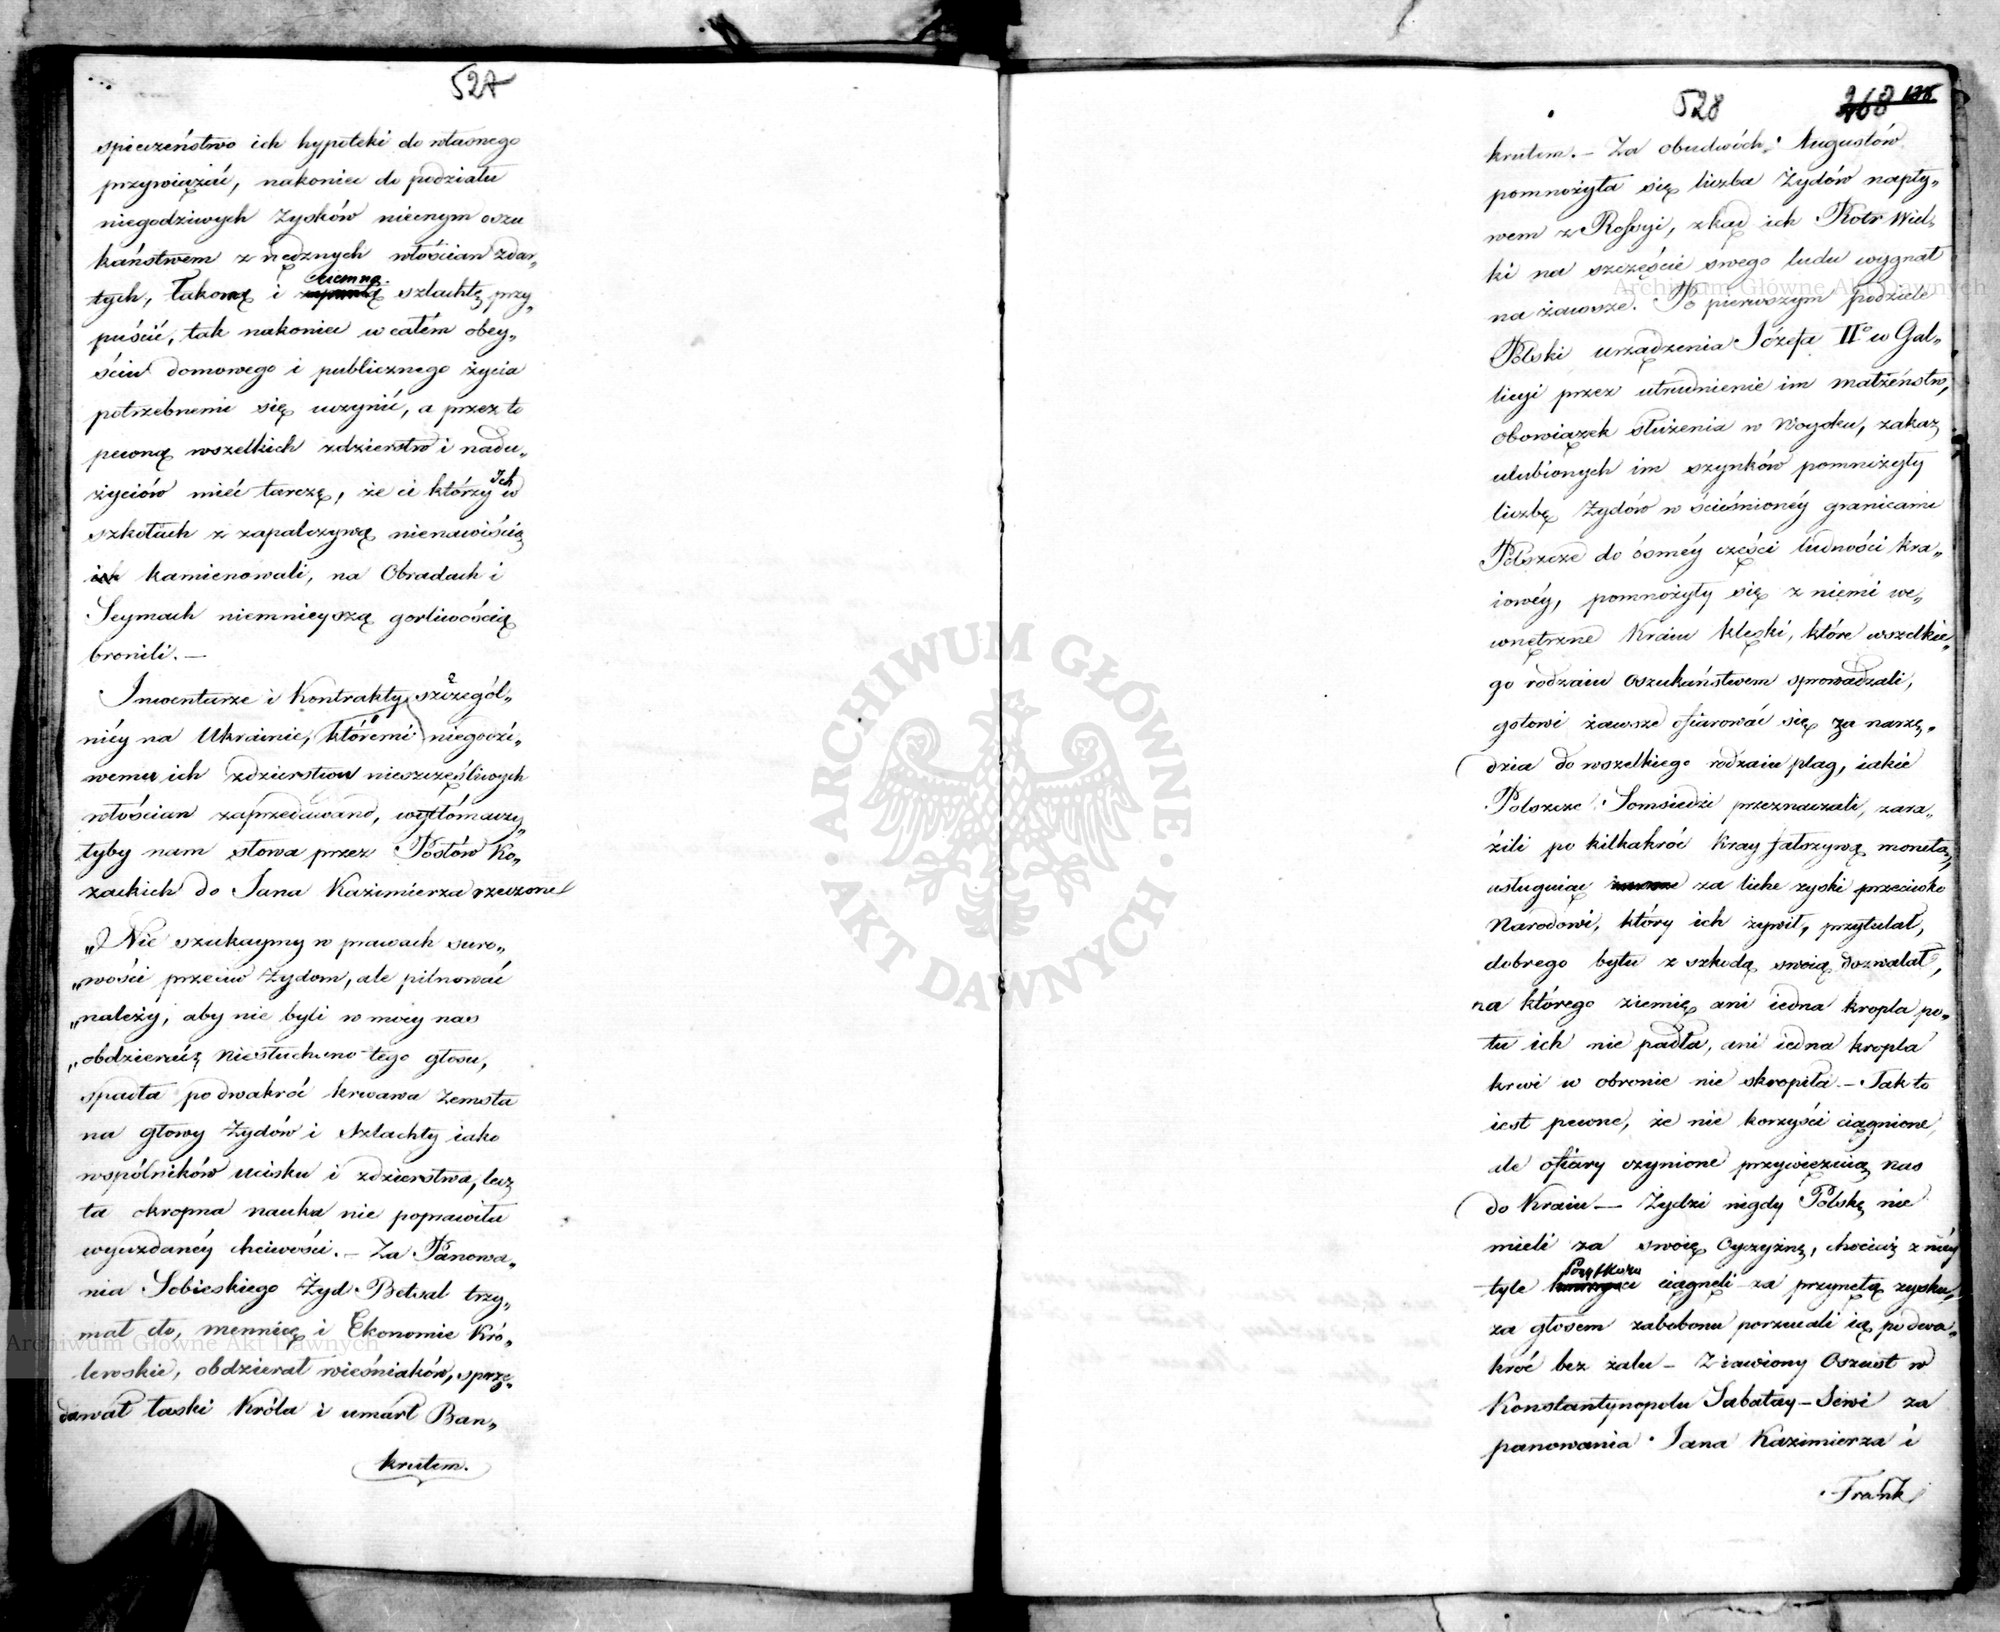 527
spieczeństwo ich hypoteki do własnego
przywiązać, nakoniec do podziału
niegodziwych zysków niecnym oszu
kaństwem z nędznych włościan zdar„
tych, łakomą i ciemną szlachtę przy„
puścić, tak nakoniec w całém obey„
ściu domowego i publicznego życia
potrzebnemi się uczynić, a przez to
pewną wszelkich zdzierstw i nadu„
życiów mieć tarczę, że ci którzy Ich w
szkołach z zapalczywą nienawiścią
ich kamienowali, na Obradach i
Seymach niemnieyszą gorliwością
bronili. —
Inwentarze i Kontrakty szczegól„
niéy na Ukrainie, któremi niegodzi„
wemu ich zdzierstwu nieszczęśliwych
włościan zaprzedawano, wytłómaczy„
łyby nam słowa przez Posłów Ko„
zackich do Jana Kazimierza rzeczone
„Nie szukaymy w prawach suro„
„wości przeciw Żydom, ale pilnować
„należy, aby nie byli w mocy nas
„obdzierać, niesłuchano tego głosu,
spadła podwakroć krwawa zemsta
na głowy Żydów i Szlachty iako
wspólników ucisku i zdzierstwa, lecz
ta okropna nauka nie poprawiła
wyuzdanéy chciwości. — Za Panowa„
nia Sobieskiego Żyd Betsal trzy„
mał cło, mennicę i Ekonomie Kró„
lewskie, obdzierał wieśniaków, sprze„
dawał łaski Króla i umarł Ban„
krutem.
528
268 178
krutem. — Za obudwóch Augustów
pomnożyła się liczba Żydów napły„
wem z Rossyi, zkąd ich Piotr Wiel„
ki na szczęście swego ludu wygnał
na zawsze. Po pierwszym podziale
Polski urządzenia Józefa IIº w Gal„
licyi przez utrudnienie im małżeństw,
obowiązek służenia w Woysku, zakaz
ulubionych im szynków pomnożyły
liczbę Żydów w ścieśnionéy granicami
Polszcze do ósméy części ludności kra„
iowéy, pomnożyły się z niemi we„
wnętrzne Kraiu klęski, które wszelkie„
go rodzaiu oszukaństwem sprowadzali,
gotowi zawsze ofiarować się za narzę„
dzia do wszelkiego rodzaiu plag, iakie
Polszcze Somsiedzi przeznaczali, zara„
zili po kilkakroć Kray fałszywą monetą,
usługuiąc za liche zyski przeciwko
Narodowi, który ich żywił, przytulał,
dobrego bytu z szkodą swoią dozwalał,
na którego ziemię ani iedna kropla po„
tu ich nie padła, ani iedna kropla
krwi w obronie nie skropiła — Tak to
iest pewne, że nie korzyści ciągnione,
ale ofiary czynione przywięzuią nas
do Kraiu — Żydzi nigdy Polskę nie
mieli za swoię Oyczyznę, chociaż z niéy
tyle Pożytków ciągnęli za przynętą zysku,
za głosem zabobonu porzucali ią podwa„
kroć bez żalu — Ziawiony Oszust w
Konstantynopolu Sabatay-Sewi za
panowania Jana Kazimierza i
Frank
Archiwum Główne Akt Dawnych
Archiwum Główne Akt Dawnych
ARCHIWUM GŁÓWNE AKT DAWNYCH